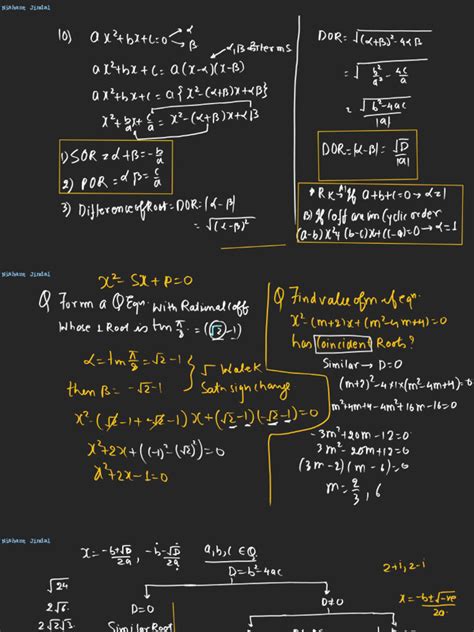 Nishant Jindal
10) ax²+bx+c=0 α β
α,β in terms
ax²+bx+c = a(x-α)(x-β)
ax²+bx+c = a{x²-(α+β)x+αβ}
x²+b/a x+c/a = x²-(α+β)x+αβ
1) SOR = α+β = -b/a
2) POR = αβ = c/a
3) Difference of Root = DOR = |α-β|
= √(α-β)²
DOR = √(α+β)²-4αβ
= √b²/a² - 4c/a
= √b²-4ac/|a|
DOR = |α-β| = √D/|a|
* RK → A) If a+b+c=0 → α=1
B) If coff are in Cyclic order
(a-b)x²+(b-c)x+(c-a)=0 → α=1
Nishant Jindal
x²-Sx+P=0
Q Form a Q Eqn. with Rational coff
Whose 1 Root is tan π/8 = (√2-1)
α = tan π/8 = √2-1
then β = -√2-1
√ wale k
Sath sign change
x²-(√2-1+-√2-1)x+(√2-1)(-√2-1)=0
x²+2x+((-1)²-(√2)²)=0
x²+2x-1=0
Q Find value of m if eqn.
x²-(m+2)x+(m²-4m+4)=0
has Coincident Roots?
Similar → D=0
(m+2)²-4×1×(m²-4m+4)=0
m²+4m+4-4m²+16m-16=0
-3m²+20m-12=0
3m²-20m+12=0
(3m-2)(m-6)=0
m=2/3, 6
Nishant Jindal
x = -b+√D/2a, -b-√D/2a
a,b,c ∈ Q
D=b²-4ac
√24
2√6
2√2√3
D=0
Similar Root
D≠0
2+i, 2-i
x = -b±√-ve/2a